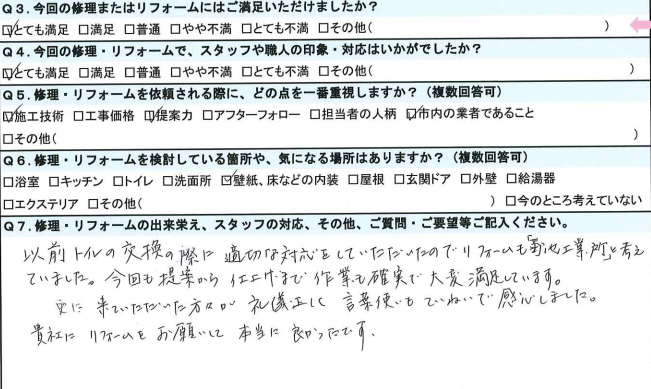 Q3.今回の修理またはリフォームにはご満足いただけましたか?
☑とても満足 □満足 □普通 □やや不満 □とても不満 □その他( )
Q4.今回の修理・リフォームで、スタッフや職人の印象・対応はいかがでしたか?
☑とても満足 □満足 □普通 □やや不満 □とても不満 □その他( )
Q5.修理・リフォームを依頼される際に、どの点を一番重視しますか?(複数回答可)
☑施工技術 □工事価格 ☑提案力 □アフターフォロー □担当者の人柄 ☑市内の業者であること
□その他( )
Q6.修理・リフォームを検討している箇所や、気になる場所はありますか?(複数回答可)
□浴室 □キッチン □トイレ □洗面所 ☑壁紙、床などの内装 □屋根 □玄関ドア □外壁 □給湯器
□エクステリア □その他( ) □今のところ考えていない
Q7.修理・リフォームの出来栄え、スタッフの対応、その他、ご質問・ご要望等ご記入ください。
以前トイレの交換の際に適切な対応をしていただいたのでリフォームも「菊池工業所」と考え
ていました。今回も提案から仕上げまで作業も確実で大変満足しています。
更に来ていただいた方々が礼儀正しく言葉使いもていねいで感心しました。
貴社にリフォームをお願いして本当に良かったです.